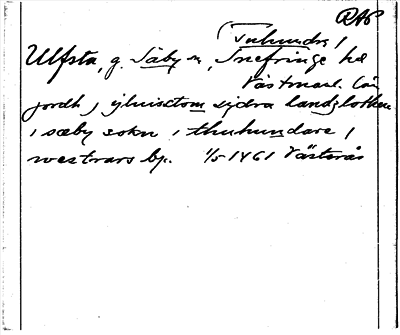 RAP
(Tuhundra)
Ulfsta, g. Säby sn, Snefringe hd
Västmanl. län
jordh j yluisztom sydra landzlothen
i sæby sokn i thuhundare i
westrars bp. 1/5 1461 Västerås